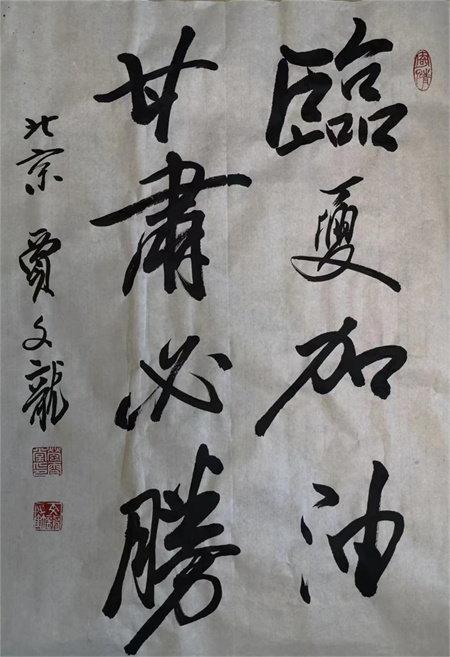 臨夏加油
甘肅必勝
北京 賈文龍